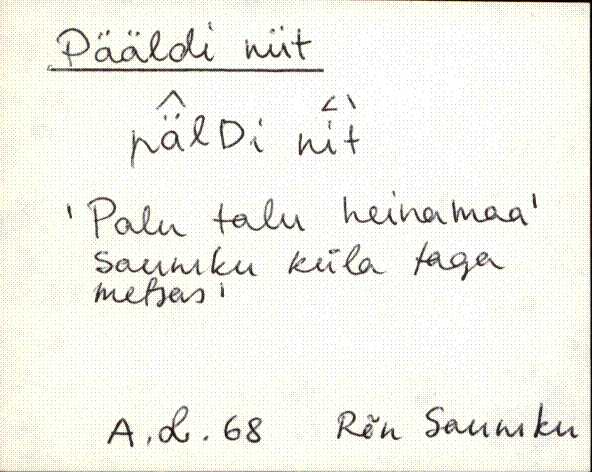 Pääldi niit
pä̂lDi nìt
'Palu talu heinamaa'
Saunaku küla taga
metsas'
A.L. 68 Rõn Saunaku